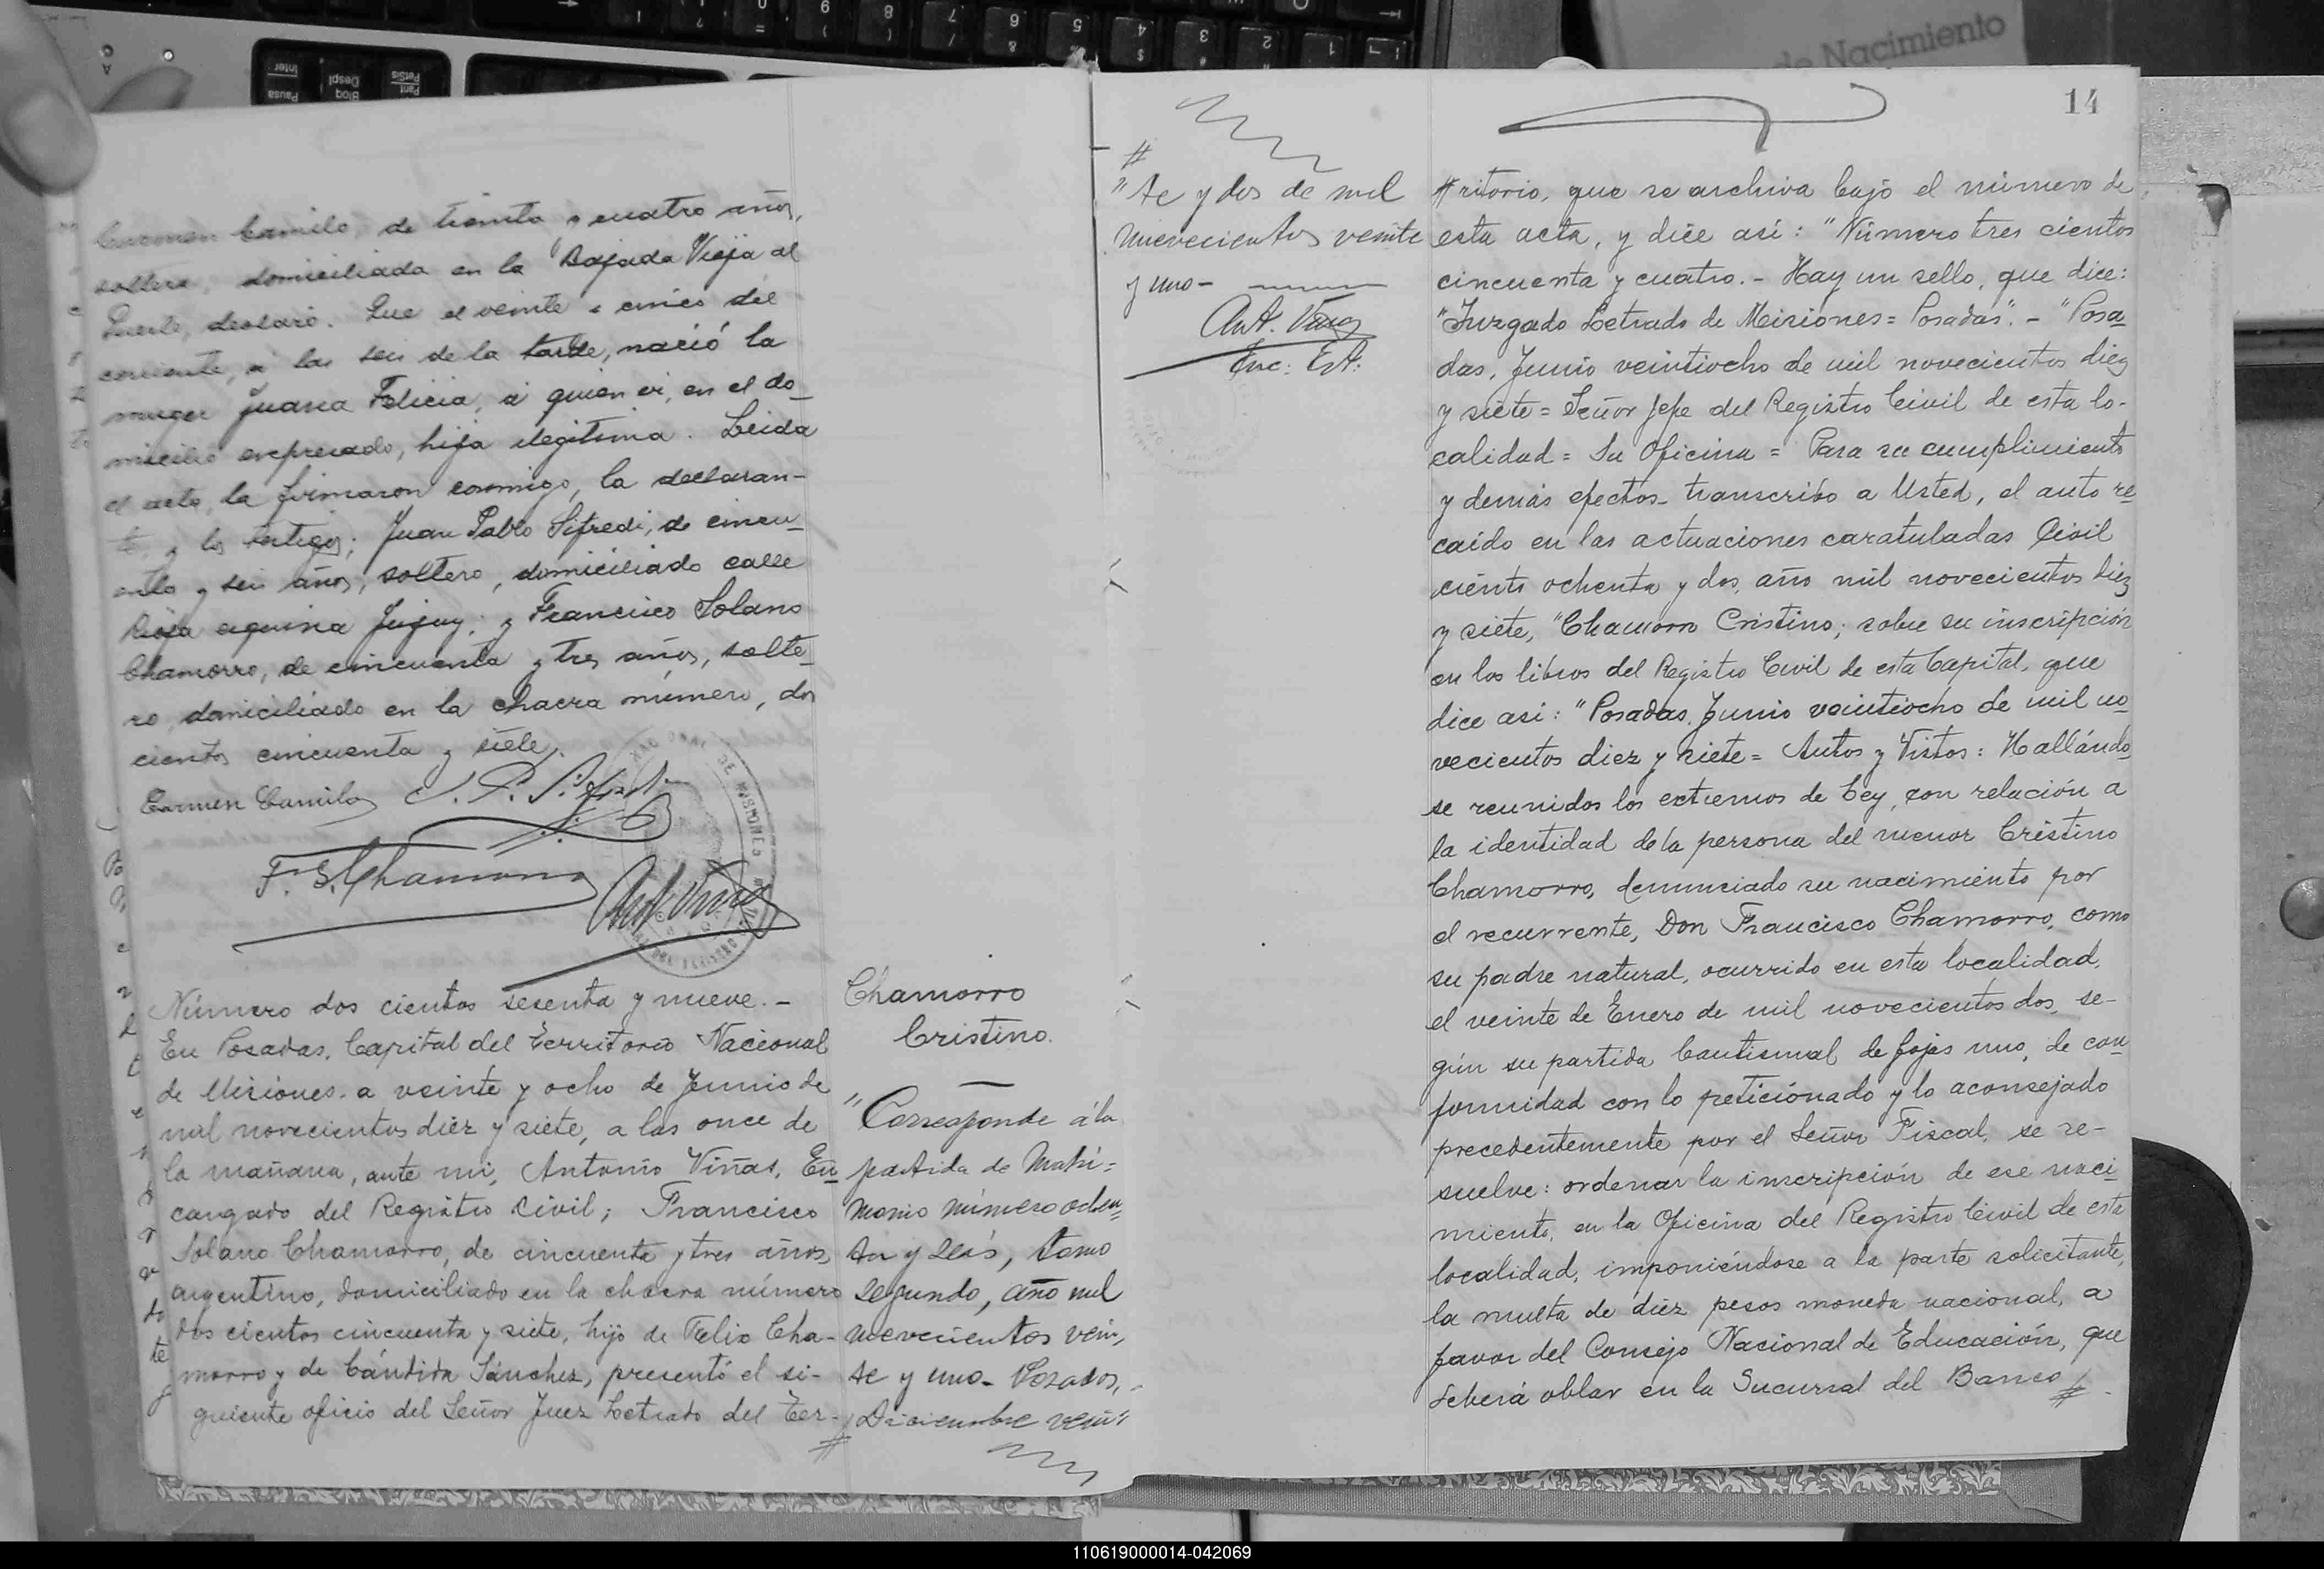 Carmen Camilo, de treinta y cuatro años,
soltera, domiciliada en la "Bajada Vieja al
Puerto, declaró. Que el veinte y cinco del
corriente, a las seis de la tarde, nació la
muger Juana Felicia, a quien vi, en el do_
micilio expresado, hija ilegitima. Leida
el acta, la firmaron conmigo, la declaran-
te, y los testigos; Juan Pablo Sifredi, de cincu_
enta y seis años, soltero, domiciliado calle
Rioja esquina Jujuy; y Francisco Solano
Chamorro, de cincuenta y tres años, solte_
ro, domiciliado en la chacra número, dos
cientos cincuenta y siete.
Carmen Camilo
F. S. Chamorro
Ant. Viñas
Número dos cientos sesenta y nueve.-
En Posadas, Capital del Territorio Nacional
de Misiones. a veinte y ocho de Junio de
mil novecientos diez y siete, a las once de
la mañana, ante mi, Antonio Viñas, En_
cargado del Registro Civil; Francisco
Solano Chamorro, de cincuenta y tres años,
argentino, domiciliado en la chacra número
dos cientos cincuenta y siete, hijo de Felix Cha-
morro y de Cándida Sánchez, presentó el si-
guiente oficio del Señor Juez Letrado del Ter-
#
Chamorro
Cristino.
"Corresponde á la
partida de Matri=
monio número ochen=
ta y seis, tomo
segundo, año mil
novecientos vein,
te y uno- Posadas,
Diciembre vein"
#
"te y dos de mil
nuevecientos veinte
y uno-
Ant. Viñas
Enc: Est:
14
#ritorio, que se archiva bajo el número de
esta acta, y dice asi: "Número tres cientos
cincuenta y cuatro.- Hay un sello, que dice:
"Juzgado Letrado de Misiones= Posadas".- "Posa_
das, Junio veintiocho de mil novecientos diez
y siete= Señor Jefe del Registro Civil de esta lo-
calidad = Su Oficina = Para su cumplimiento
y demás efectos- transcribo a Usted, el auto re_
caído en las actuaciones caratuladas Civil
ciento ochenta y dos, año mil novecientos diez
y siete, "Chamorro Cristino; sobre su inscripción
en los libros del Registro Civil de esta Capital, que
dice asi: "Posadas, Junio veintiocho de mil no_
vecientos diez y siete= Autos y Vistos: Hallándo_
se reunidos los extremos de Ley, con relación a
la identidad de la persona del menor Cristino
Chamorro, denunciado su nacimiento por
el recurrente, Don Francisco Chamorro, como
su padre natural, ocurrido en esta localidad,
el veinte de Enero de mil novecientos dos, se-
gún su partida bautismal de fojas uno, de con_
formidad con lo peticiónado y lo aconsejado
precedentemente por el Señor Fiscal, se re-
suelve: ordenar la inscripción de ese naci_
miento, en la Oficina del Registro Civil de esta
localidad, imponiéndose a la parte solicitante,
la multa de diez pesos moneda nacional, a
favor del Consejo Nacional de Educación, que
deberá oblar en la Sucursal del Banco #
110619000014-042069